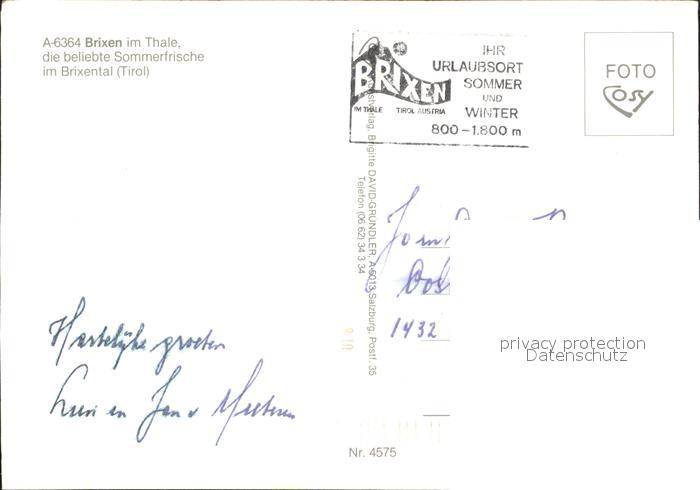 A-6364 Brixen im Thale,
die beliebte Sommerfrische
im Brixental (Tirol)
BRIXEN
IM THALE TIROL AUSTRIA
IHR
URLAUBSORT
SOMMER
UND
WINTER
800-1.800 m
FOTO
Cosy
Brigitte DAVID-GRUNDLER, A-5013 Salzburg, Postf. 35
Telefon (06 62) 34 3 34
1432
Hartelijke groeten
en Jan
privacy protection
Datenschutz
Nr. 4575